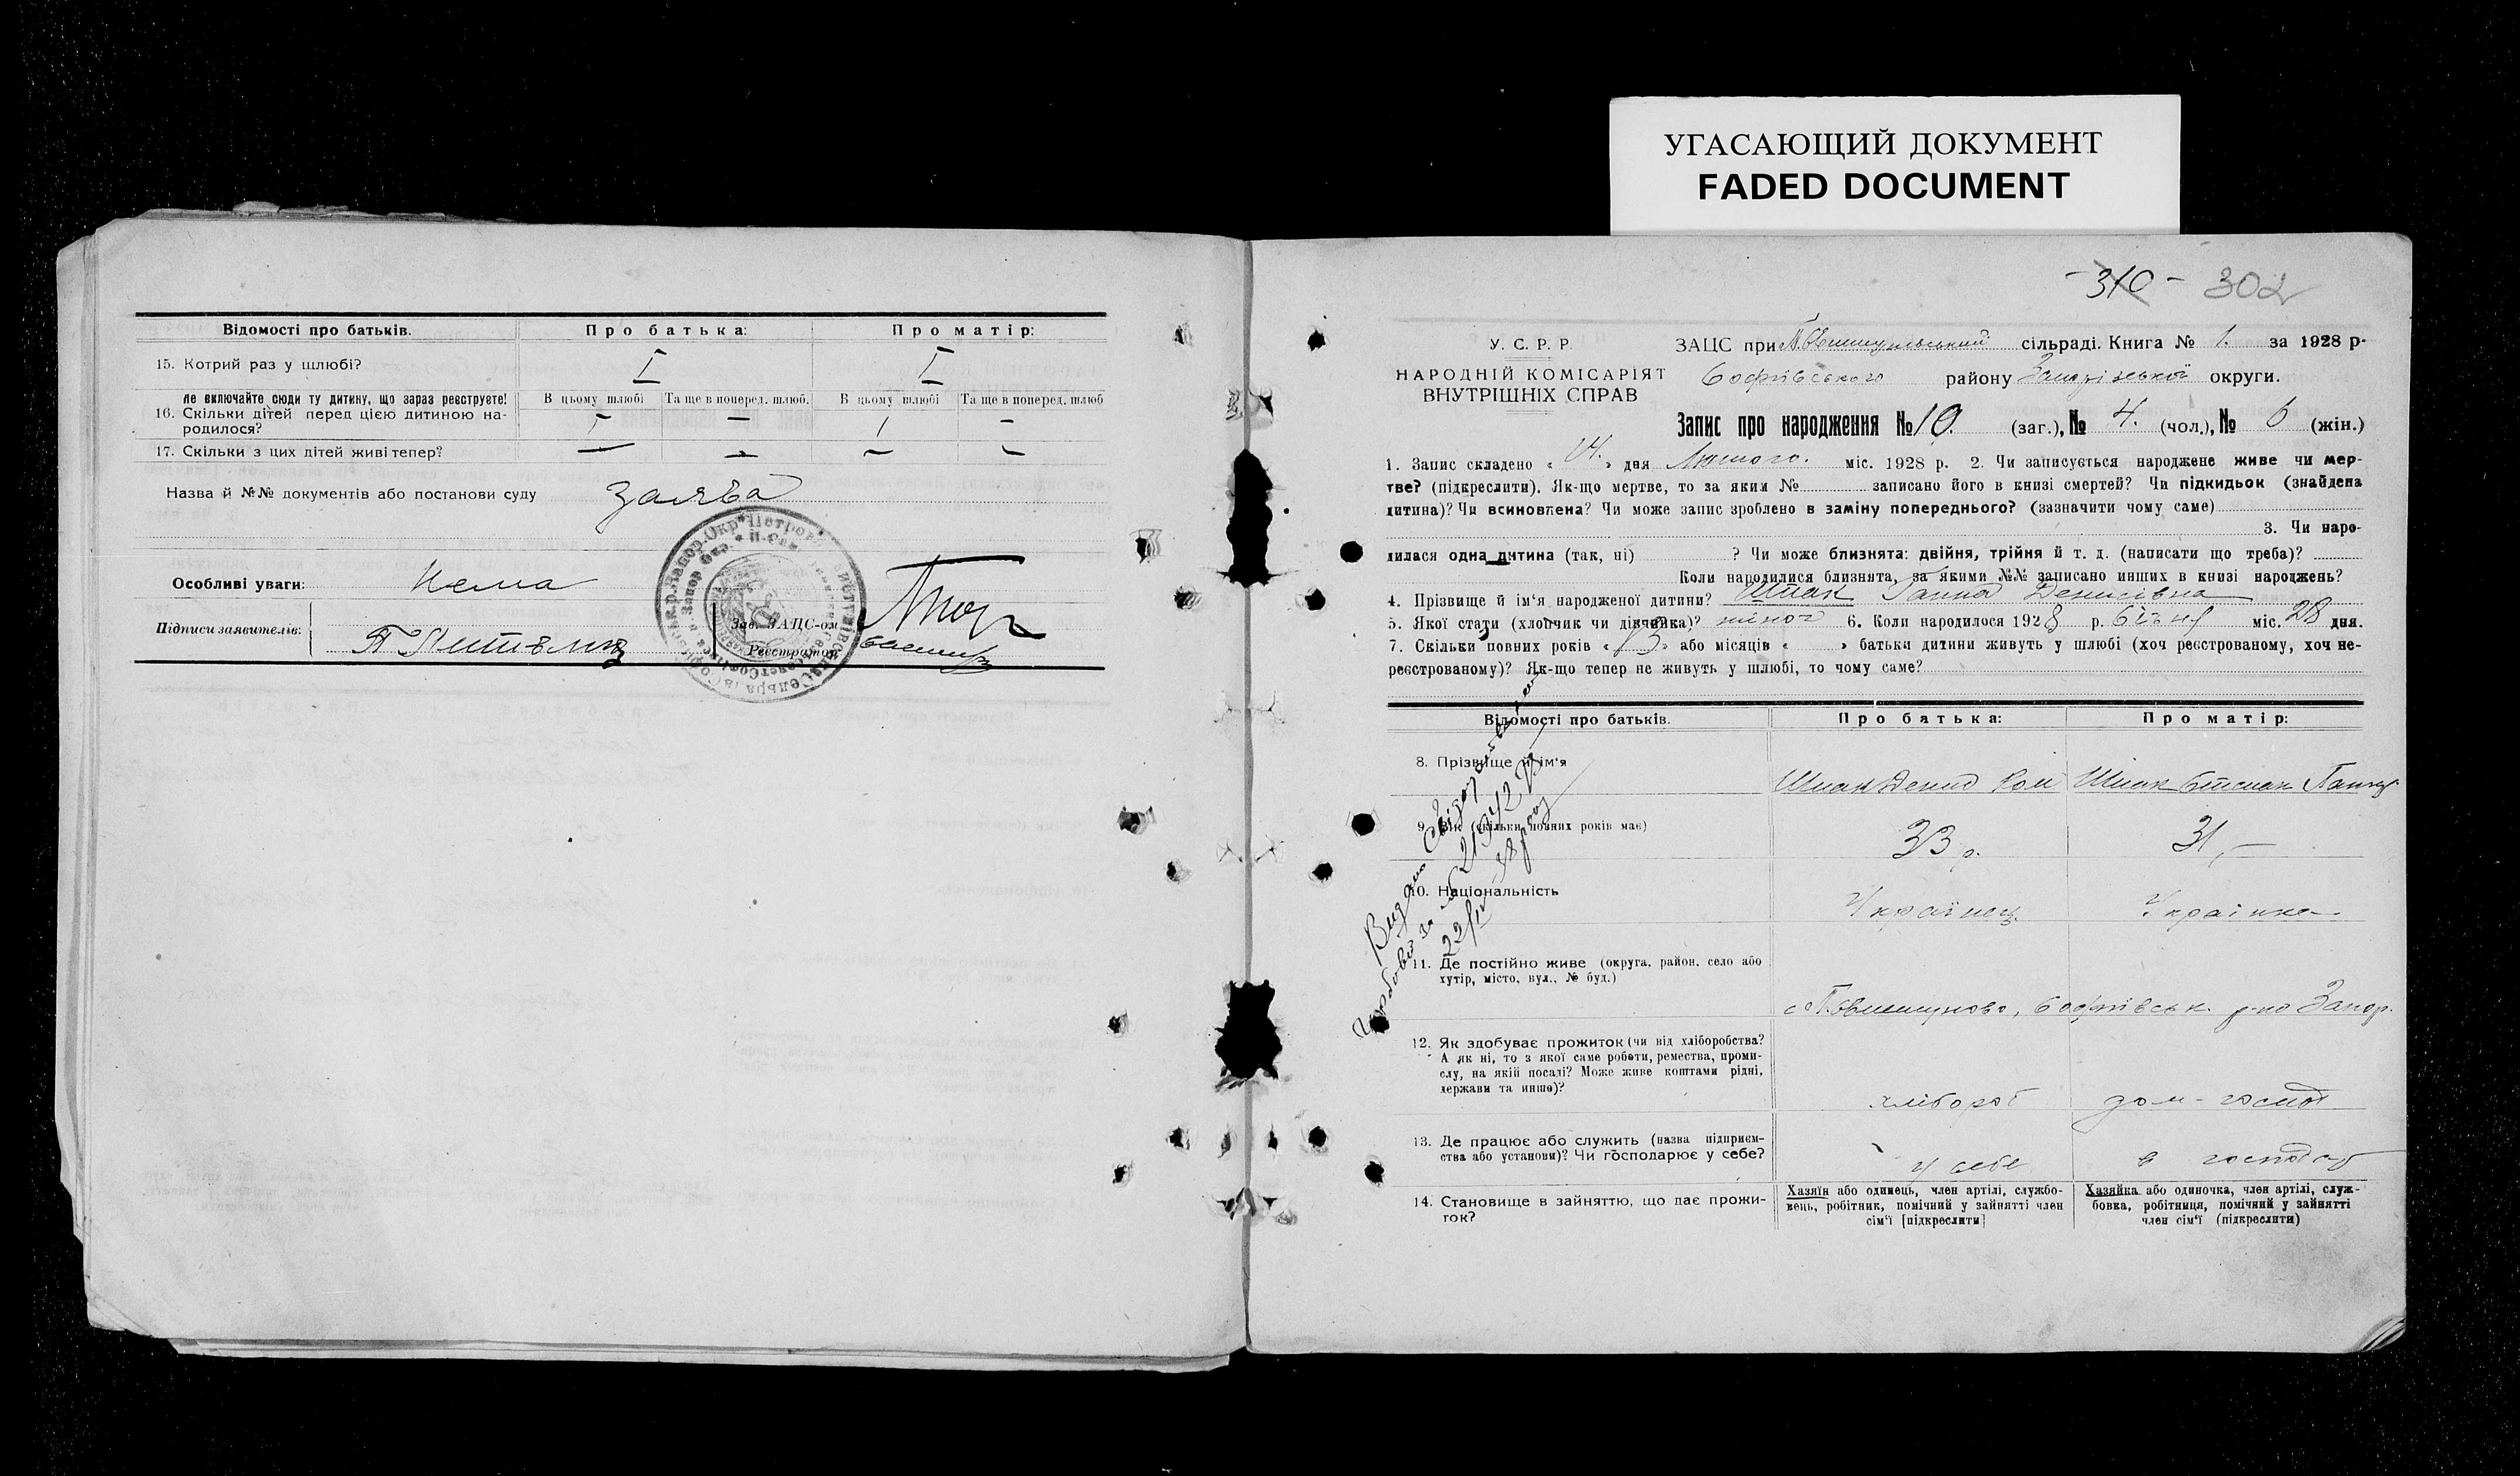 УГАСАЮЩИЙ ДОКУМЕНТ
FADED DOCUMENT
Відомості про батьків.
Про батька:
Про матір:
15. Котрий раз у шлюбі?
I
I
не включайте сюди ту дитину, що зараз реєструєте!
16. Скільки дітей перед цією дитиною на-
родилося?
В цьому шлюбі
Та ще в поперед. шлюб.
В цьому шлюбі
Та ще в поперед. шлюб
I
—
I
—
17. Скільки з цих дітей живі тепер?
— — — —
Назва й №№ документів або постанови суду заява
Особливі уваги: Нема
Підписи заявителів:
Зав. ЗАЦС-ом
Реєстратор
-310- 302
У. С. Р. Р.
НАРОДНІЙ КОМІСАРІЯТ
ВНУТРІШНІХ СПРАВ
ЗАЦС при сільраді. Книга № 1. за 1928 р.
Софіївського району Запорізької округи.
Запис про народження № 10. (заг.), № 4. (чол.), № 6 (жін.)
1. Запис складено « 14. » дня Лютого. міс. 1928 р. 2. Чи записується народжене живе чи мер-
тве? (підкреслити). Як-що мертве, то за яким № записано його в книзі смертей? Чи підкидьок (знайдена
дитина)? Чи всиновлена? Чи може запис зроблено в заміну попереднього? (зазначити чому саме)
3. Чи наро-
дилася одна дитина (так, ні) ? Чи може близнята: двійня, трійня й т. д. (написати що треба)?
Коли народилися близнята, за якими №№ записано инших в книзі народжень?
4. Прізвище й ім'я народженої дитини? Шпак Ганна Денисівна
5. Якої стати (хлопчик чи дівчинка)? жіноч 6. Коли народилося 1928 р. Січня міс. 28 дня.
7. Скільки повних років « 13 » або місяців « » батьки дитини живуть у шлюбі (хоч реєстрованому, хоч не-
реєстрованому)? Як-що тепер не живуть у шлюбі, то чому саме?
Відомості про батьків.
Про батька:
Про матір:
8. Прізвище й ім'я
Шпак Денис
Шпак
9. Вік (скільки повних років має)
33 р.
31
10. Національність
Українец
Українка
11. Де постійно живе (округа, район, село або
хутір, місто, вул., № буд.)
Софіївськ. р-но Запор.
12. Як здобуває прожиток (чи від хліборобства?
А як ні, то з якої саме роботи, ремества, проми-
слу, на якій посаді? Може живе коштами рідні,
держави та инше)?
хлібороб
дом-господ
13. Де працює або служить (назва підприєм-
ства або установи)? Чи господарює у себе?
у себе
в господар
14. Становище в зайняттю, що дає прожи-
ток?
Хазяїн або одинець, член артілі, службо-
вець, робітник, помічний у зайнятті член
сім'ї [підкреслити]
Хазяйка або одиночка, член артілі, служ-
бовка, робітниця, помічний у зайнятті
член сім'ї (підкреслити)